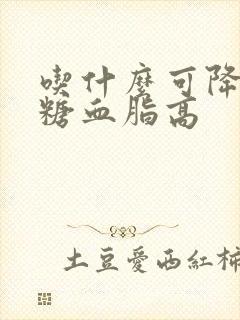 喫什麼可降
糖血脂高
土豆愛西紅柿